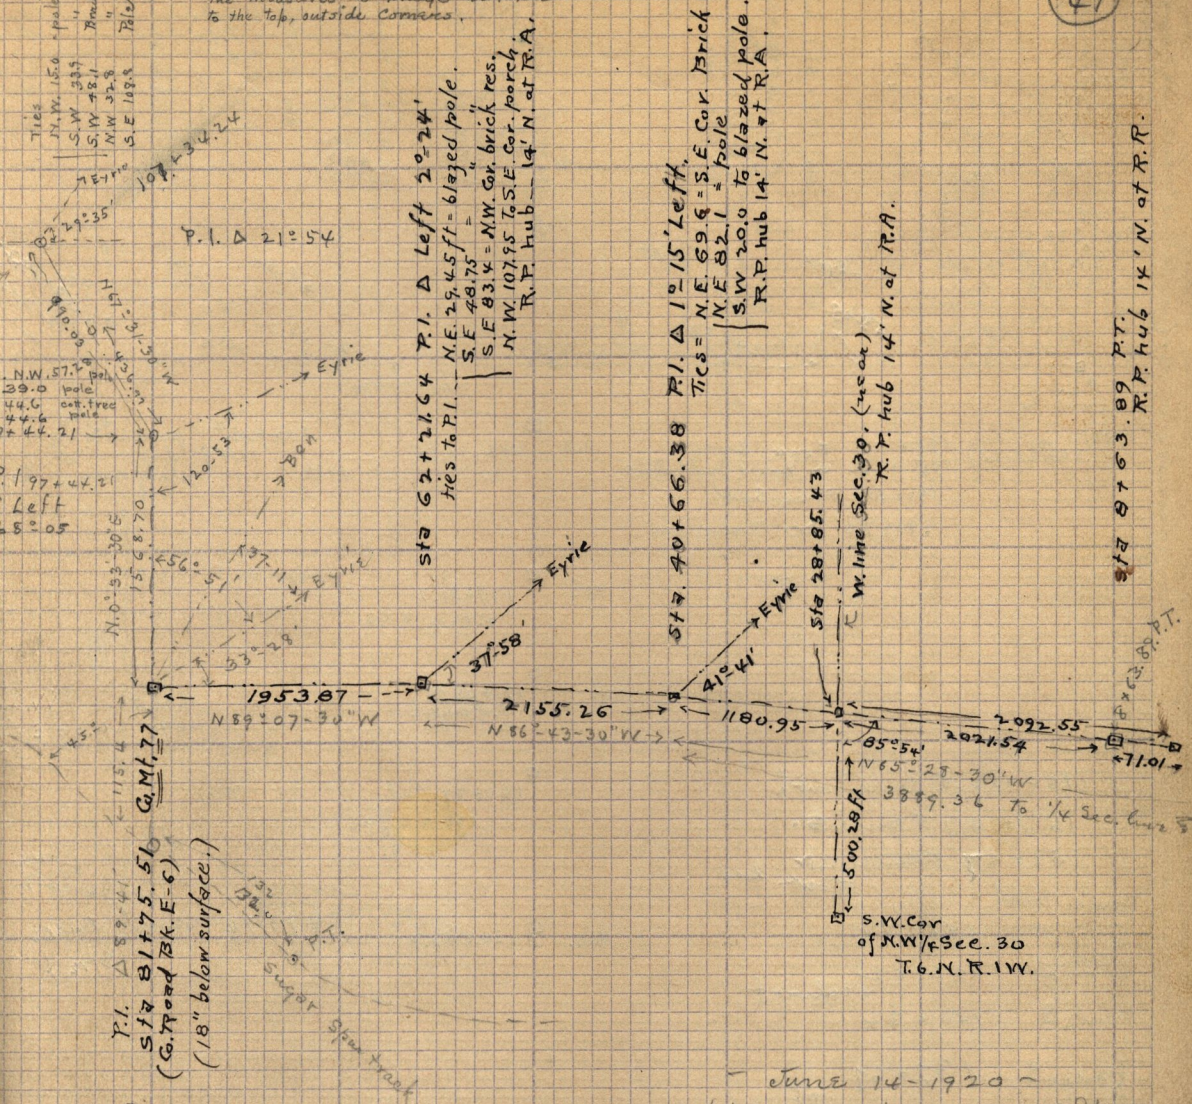 to the top, outside corners.
41
Ties
N.W. 15.0 pole
S.W 33.9 "
S.W 48.1
N.W 32.8 "
S.E 108.8 Pole
Eyrie
107+34.24
29°35'
P.I. Δ 21°54
990.03
N 67°-31-30"W
436.92
N.W. 57.28 pole
39.0 pole
44.6 cott. tree
44.6 pole
+ 44.21
197+44.21
Left
68°05
Eyrie
120-53
Bon
N.0°-33'-30"E
1568.70
56°51'
37-11
Eyrie
33°-28'
sta 62+21.64 P.I. Δ Left 2°-24'
ties to P.I. N.E. 29.45 ft = blazed pole.
S.E 48.75 = "
S.E 83.4 = N.W. Cor. brick res.
N.W. 107.95 To S.E. Cor. porch.
R.P. hub 14' N. at R.A.
sta 40+66.38 P.I. Δ 1°15' Left.
Ties = N.E. 69.6 = S.E. Cor. Brick
N.E 82.1 = pole
S.W 20.0 to blazed pole.
R.P. hub 14' N. at R.A.
Sta 28+85.43
W. line Sec. 30, (near)
R.P. hub 14' N. at R.A.
sta 8+63.89 P.T.
R.P. hub 14' N. at R.R.
8+63.89 P.T.
Eyrie
37°-58'
Eyrie
41°-41'
1953.87
N 89°07-30"W
2155.26
N 86°-43-30"W
1180.95
2092.55
2021.54
71.01
85°54'
N 85°-28-30"W
3889.36 To 1/4 Sec. line
500.28 Ft
S.W. Cor
of N.W 1/4 Sec. 30
T.6.N.R.1W.
45°
115.4
Co. Mt. 77
P.I. Δ 89-41
Sta 81+75.51
(Co. Road Bk. E-6)
(18" below surface.)
132
P.T.
Sugar Spur track
- June 14-1920 -